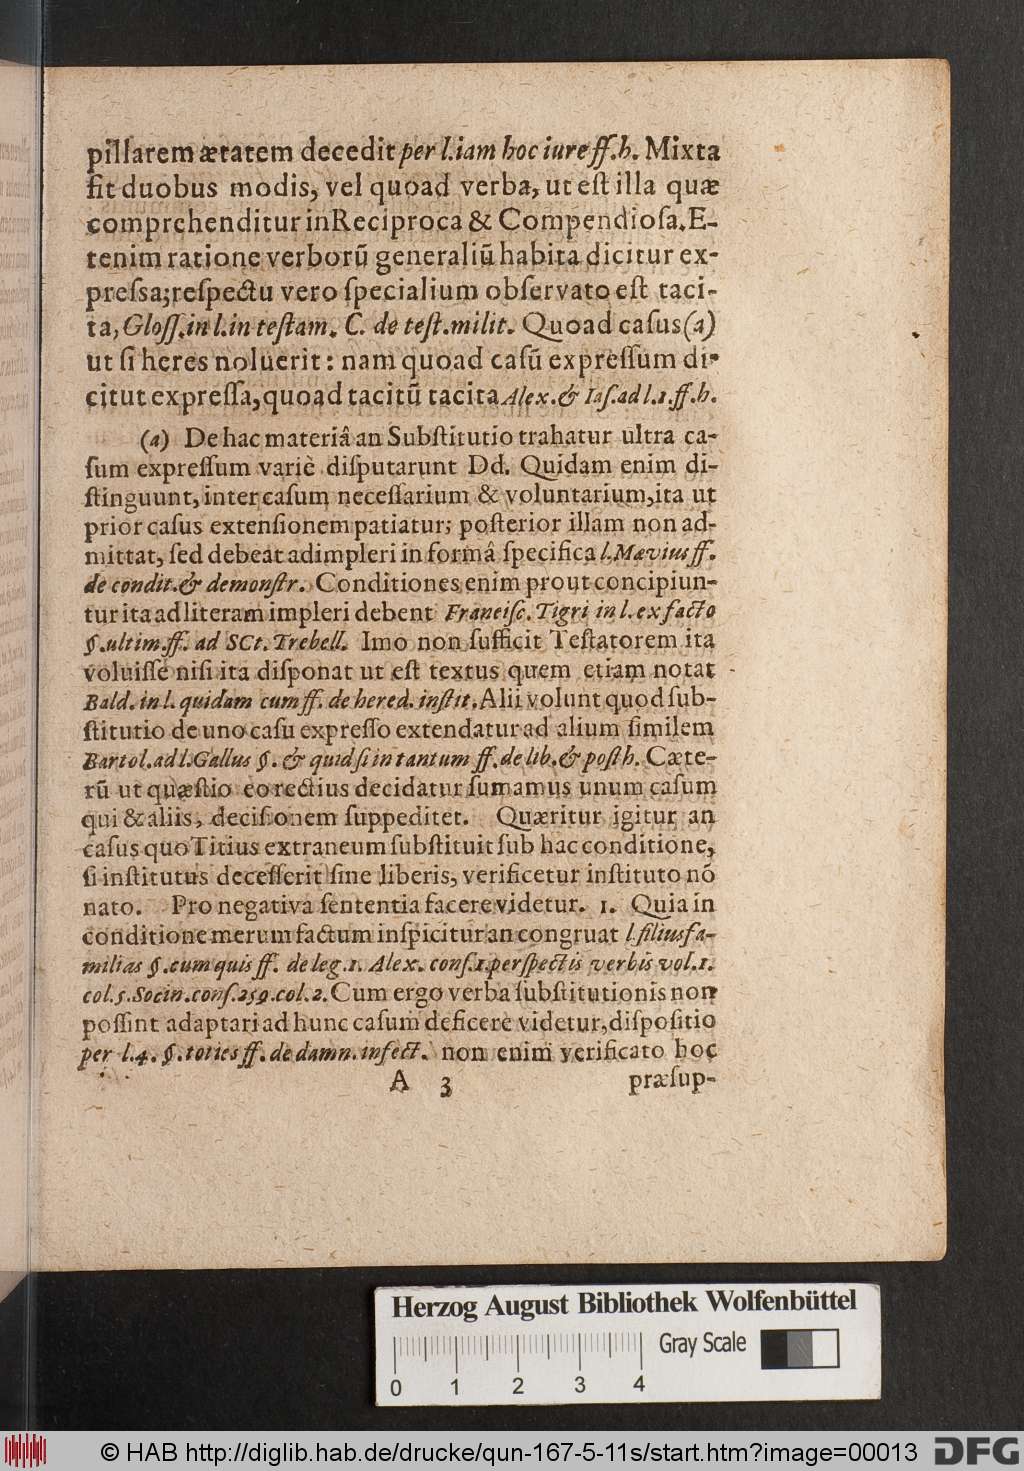 pillarem ætatem decedit per l.iam hoc iure ff.h. Mixta
fit duobus modis, vel quoad verba, ut eſt illa quæ
comprehenditur in Reciproca & Compendioſa. E-
tenim ratione verborũ generaliũ habita dicitur ex-
preſsa; reſpectu vero ſpecialium obſervato eſt taci-
ta, Gloſſ. in l. in teſtam. C. de teſt. milit. Quoad caſus (a)
ut ſi heres noluerit : nam quoad caſũ expreſſum di-
citut expreſſa, quoad tacitũ tacita Alex. & Iaſ. ad l.1. ff. h.
(a) De hac materiâ an Subſtitutio trahatur ultra ca-
ſum expreſſum variè diſputarunt Dd. Quidam enim di-
ſtinguunt, inter caſum neceſſarium & voluntarium, ita ut
prior caſus extenſionem patiatur; poſterior illam non ad-
mittat, ſed debeat adimpleri in formâ ſpecifica l. Mævius ff.
de condit. & demonſtr. Conditiones enim prout concipiun-
tur ita ad literam impleri debent Franciſc. Tigri in l. ex facto
§. ultim. ff. ad SCt. Trebell. Imo non ſufficit Teſtatorem ita
voluiſſe niſi ita diſponat ut eſt textus quem etiam notat
Bald. in l. quidam cum ff. de hered. inſtit. Alii volunt quod ſub-
ſtitutio de uno caſu expreſſo extendatur ad alium ſimilem
Bartol. ad l. Gallus §. & quid ſi in tantum ff. de lib. & poſth. Cæte-
rũ ut quæſtio eo rectius decidatur ſumamus unum caſum
qui & aliis, deciſionem ſuppeditet. Quæritur igitur an
caſus quo Titius extraneum ſubſtituit ſub hac conditione,
ſi inſtitutus deceſſerit ſine liberis, verificetur inſtituto nõ
nato. Pro negativa ſententia facere videtur. 1. Quia in
conditione merum factum inſpicitur an congruat l. filiusfa-
milias §. cum quis ff. de leg. 1. Alex. conſ. 1. perſpectis verbis vol. 1.
col. 5. Socin. conſ. 259. col. 2. Cum ergo verba ſubſtitutionis non
poſſint adaptari ad hunc caſum deficere videtur, diſpoſitio
per l. 4. §. toties ff. de damn. infect. non enim verificato hoc
A 3 præſup-
Herzog August Bibliothek Wolfenbüttel
Gray Scale
0 1 2 3 4
© HAB http://diglib.hab.de/drucke/qun-167-5-11s/start.htm?image=00013 DFG